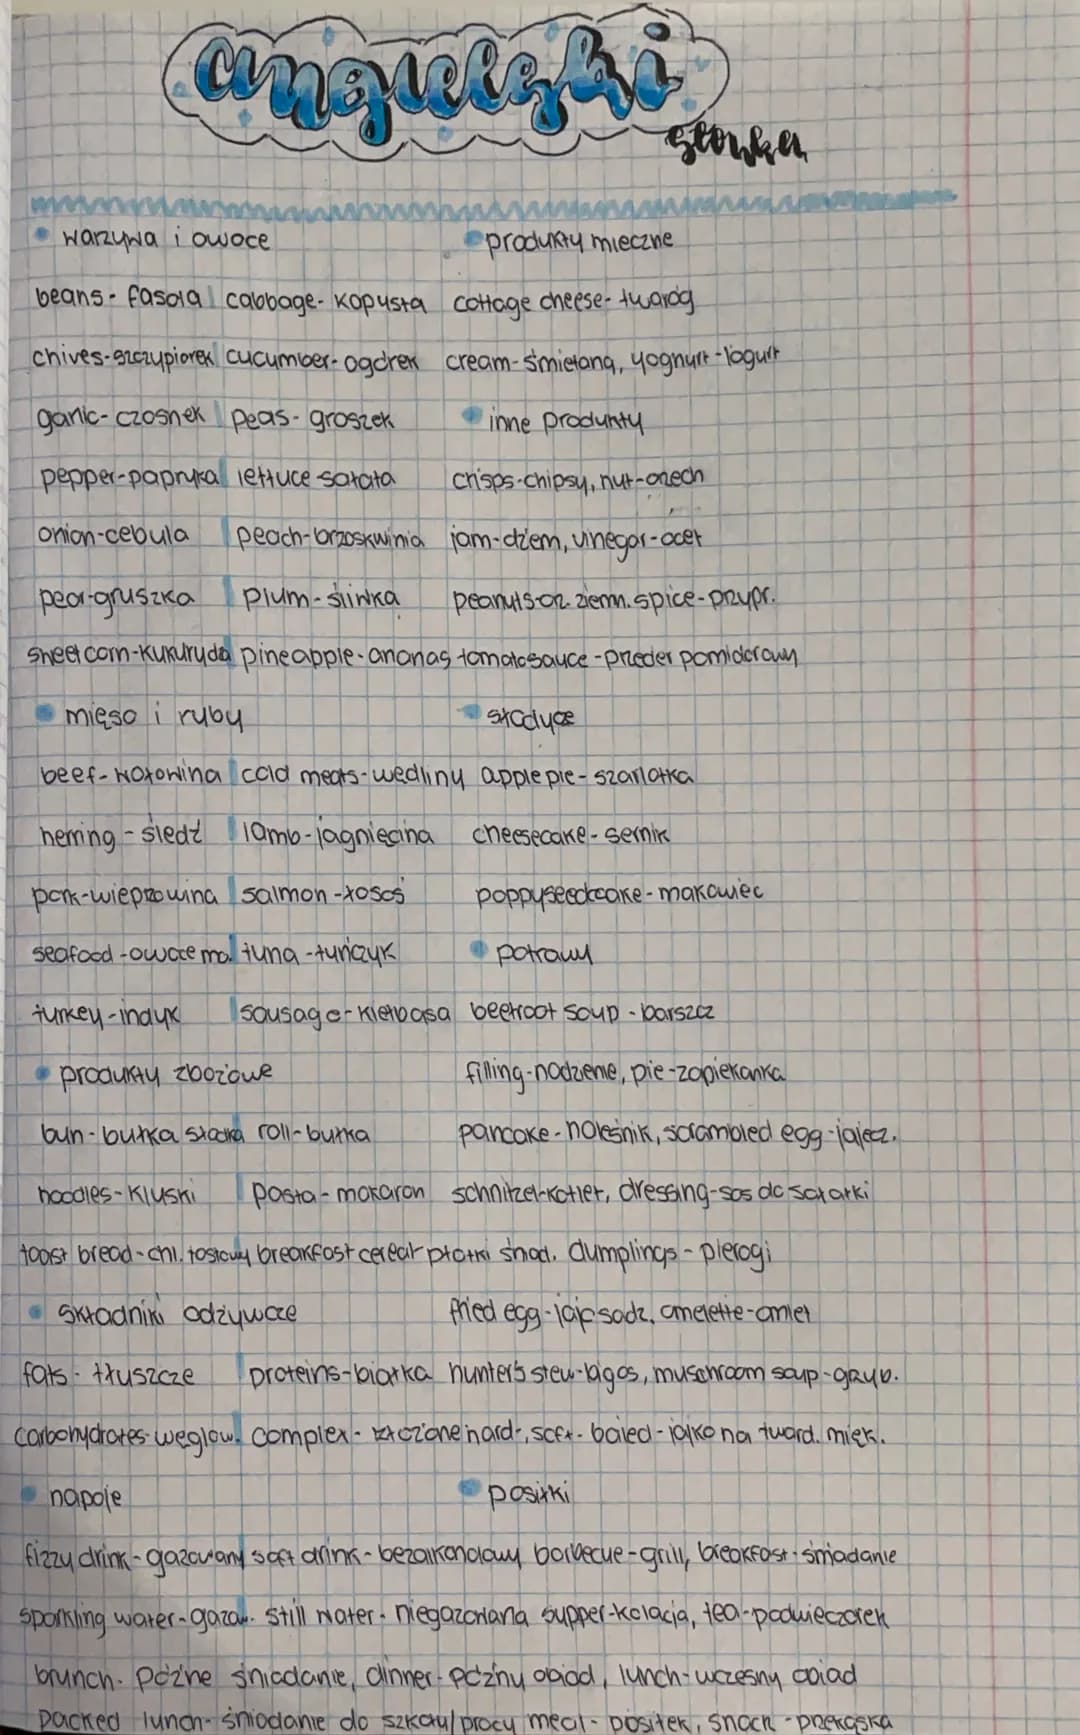 angielski
słówka
warzywa i owoce
produkty mleczne
beans - fasola cabbage - kapusta cottage cheese - twaróg
chives - szczypiorek cucumber - ogórek cream - śmietana, yoghurt - jogurt
garlic - czosnek peas - groszek
inne produkty
pepper - papryka lettuce sałata crisps - chipsy, nut - orzech
onion - cebula peach - brzoskwinia jam - dżem, vinegar - ocet
pear - gruszka plum - śliwka peanuts - orz. ziemn. spice - przypr.
sweet corn - kukurydza pineapple - ananas tomato sauce - przecier pomidorowy
mięso i ryby
słodycze
beef - wołowina cold meats - wędliny apple pie - szarlotka
herring - śledź lamb - jagnięcina cheesecake - sernik
pork - wieprzowina salmon - łosoś poppyseedcake - makowiec
seafood - owoce mo. tuna - tuńczyk
potrawy
turkey - indyk sausage - kiełbasa beetroot soup - barszcz
produkty zbożowe
filling - nadzienie, pie - zapiekanka
bun - bułka słodka roll - bułka pancake - naleśnik, scrambled egg - jajecz.
noodles - kluski pasta - makaron schnitzel - kotlet, dressing - sos do sałatki
toast bread - chl. tostowy breakfast cereal płatki śniad. dumplings - pierogi
składniki odżywcze
fried egg - jajo sadz, omelette - omlet
fats - tłuszcze proteins - białka hunter's stew - bigos, muschroom soup - grzyb.
carbohydrates - węglow. complex - złożone hard-, soft- boiled - jajko na tward. mięk.
napoje
posiłki
fizzy drink - gazowany soft drink - bezalkoholowy barbecue - grill, breakfast - śniadanie
sparkling water - gazow. still water - niegazowana supper - kolacja, tea - podwieczorek
brunch - późne śniadanie, dinner - późny obiad, lunch - wczesny obiad
packed lunch - śniadanie do szkoły/pracy meal - posiłek, snack - przekąska